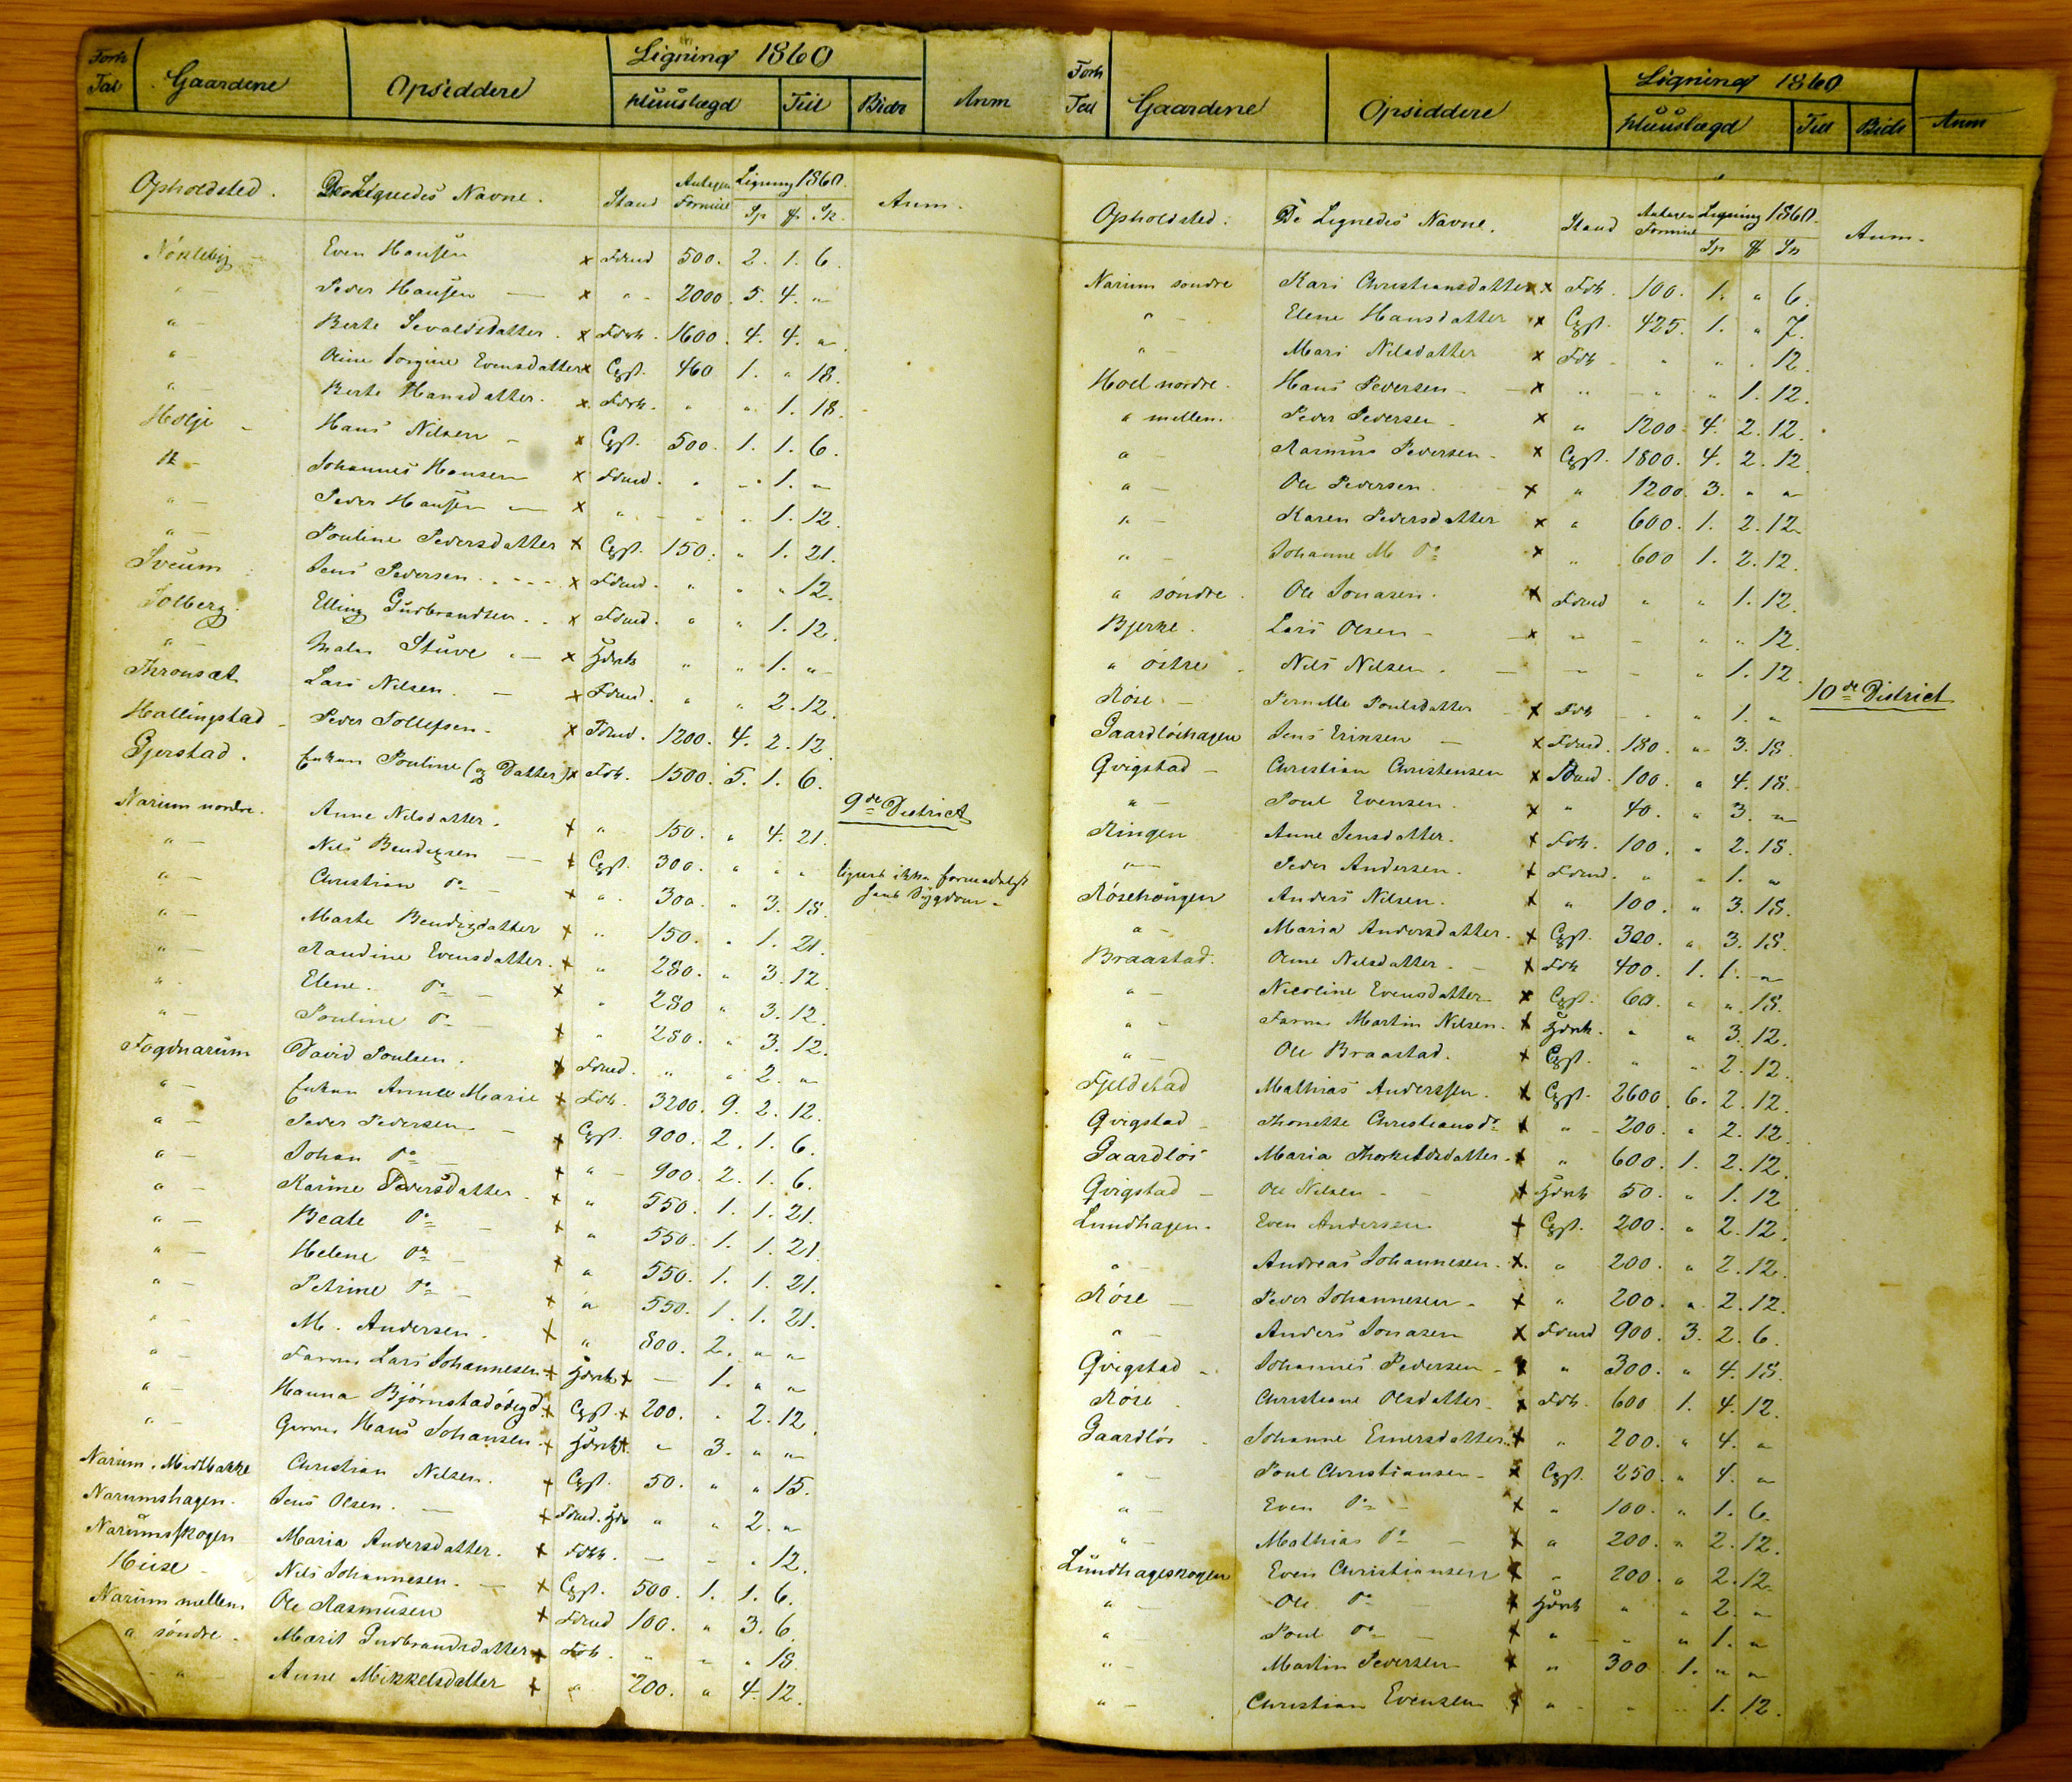 Forh Tal Gaardene Opsiddere Ligning 1860 Huuslægd Tiil Bidr Anm
Opholdsted. De Lignedes Navne. Stand Antagen Formue Ligning 1860. Sp ꝑ Sk. Anm.
Nökleby Even Hansen x Fdrud 500. 2. 1. 6.
" - Peder Hansen — x " - 2000. 5. 4. "
" - Berte Sevaldsdatter. x Fdrh. 1600. 4. 4. "
" - Oline Jorgine Evensdatter x Cgst. 460 1. " 18.
" - Berte Hansdatter. x Fdrh. " " 1. 18.
Holje - Hans Nilsen - x Cgst. 500. 1. 1. 6.
" - Johannes Hansen x Fdrud. " " 1. "
" - Peder Hansen — x " - " " 1. 12.
" - Pouline Pedersdatter x Cgst. 150. " 1. 21.
Sveum Jens Pedersen - - - - x Fdrud. " " " 12.
Solberg. Elling Gudbrandsen - . x Fdrud. " " 1. 12.
" - Maler Stuve - — x Hdrk " " 1. "
Thronsæt Lars Nilsen. — x Fdrud. " " 2. 12.
Hallingstad - Peder Tollefsen. x Fdrud. 1200. 4. 2. 12.
Gjerstad. Enken Pouline (og Datter) x Fdh. 1500. 5. 1. 6.
9de District
Narum nordre. Anne Nilsdatter. x " 150. " 4. 21.
" - Nils Bendigsen — — x Cgst. 300. " " " lignet ikke formedelst
Christian Do x " . 300. " 3. 18. Sygdom -
" - Marte Bendigsdatter x " 150. " 1. 21.
" - Randine Evensdatter. x " 280. " 3. 12.
" - Elene. Do — x " 280 " 3. 12.
" - Pouline Do — x " 280. " 3. 12.
Fogdnarum David Poulsen. x Fdrud. " " 2. "
" - Enken Anne Marie x Fdh. 3200. 9. 2. 12.
" - Peder Pedersen — x Cgst. 900. 2. 1. 6.
" - Johan Do — x " - 900. 2. 1. 6.
" - Karine Pedersdatter. x " 550. 1. 1. 21.
" - Beate Do — x " 550. 1. 1. 21
" - Helene Do — x " 550. 1. 1. 21.
" - Petrine Do — x " 550. 1. 1. 21.
" - M. Andersen. x " 800. 2. " "
" - Lars Johannesen x Hdrk x — 1. " "
" - Hanna Björnstadödegd. x Cgst. x 200. " 2. 12.
" - Hans Johansen. x Hdrk x " 3. " "
Narum. Midtbakke Christian Nilsen. x Cgst. 50. " " 15.
Narumshagen. Jens Olsen. — x Fdrud. Hdr " " 2. "
Narumskogen Maria Andersdatter. x Fdhh. — - " 12.
Huse - Nils Johannesen. — x Cgst. 500. 1. 1. 6.
Narum mellem Ole Rasmusen x Fdrud 100. " 3. 6.
" söndre. Marit Gudbrandsdatter x Fdh. " " " 18.
" - Anne Mikkelsdatter x " 200. " 4. 12.
Forh Tal Gaardene Opsiddere Ligning 1860 Huuslægd Tiil Bidr Anm
Opholdsted. De Lignedes Navne. Stand Antagen Formue Ligning 1860. Sp ꝑ Sk Anm.
Narum söndre Kari Christiansdatter x Fdh. 100. 1. " 6.
" - Elene Hansdatter x Cgst. 425. 1. " 7.
" - Mari Nilsdatter x Fdh - " " " 12.
Hoel nordre. Hans Pedersen - x " - " " 1. 12.
" mellem. Peder Pedersen - x " 1200. 4. 2. 12.
" - Rasmus Pedersen - x Cgst. 1800. 4. 2. 12
" - Ole Pedersen. x " 1200. 3. " "
" - Karen Pedersdatter x " 600. 1. 2. 12
" - Johanne M. Do x " 600 1. 2. 12.
" söndre. Ole Jonasen. x Fdrud " " 1. 12.
Bjerke. Lars Olsen - x " - " " 12.
" östre - Nils Nilsen. — — - " 1. 12.
10de District
Röse - Pernille Poulsdatter x Fdh - " " 1. "
Gaardlöshagen Jens Eriksen — x Fdrud. 180. " 3. 18.
Qvigstad - Christian Christensen x Fdrud. 100. " 4. 18.
" - Poul Evensen. x " 40. " 3. "
Ringen Anne Jensdatter. x Fdh. 100. " 2. 18.
" - Peder Andersen. x Fdrud. " " 1. "
Rösehougen Anders Nilsen. x " 100. " 3. 18.
" - Maria Andersdatter. x Cgst. 300. " 3. 18.
Braastad. Oline Nilsdatter. - x Fdh 400. 1. 1. "
" - Nicoline Evensdatter x Cgst. 60. " " 18.
" - Martin Nilsen. x Hdrk. " " 3. 12.
" - Ole Braastad. x Cgst. " " 2. 12.
Fjeldstad Mathias Anderssen. x Cgst. 2600. 6. 2. 12.
Qvigstad - Thonette Christiansdr x " - 200. " 2. 12.
Gaardlös Maria Thorkeldsdatter. x " 600. 1. 2. 12.
Qvigstad - Ole Nilsen - - x Hdrk 50. " 1. 12
Lundhagen. Even Andersen x Cgst. 200. " 2. 12.
" - Andreas Johannesen. x " 200. " 2. 12.
Röse — Peder Johannesen. x " 200. " 2. 12.
" - Anders Jonasen x Fdrud 900. 3. 2. 6.
Qvigstad - Johannes Pedersen - x " 300. " 4. 18.
Röse. Christiane Olsdatter. x Fdh. 600 1. 4. 12.
Gaardlös - Johanne Einersdatter. x " 200. " 4. "
" - Poul Christiansen - x Cgst. 250. " 4. "
" - Even Do - x " 100. " 1. 6.
" - Mathias Do - x " 200. " 2. 12.
Lundhageskogen Even Christiansen x " 200. " 2. 12.
" - Ole Do - x Hdrk " " 2. "
" - Poul Do - x " - " " 1. "
" - Martin Pedersen x " 300. 1. " "
" - Christian Evensen x " - " " 1. 12.